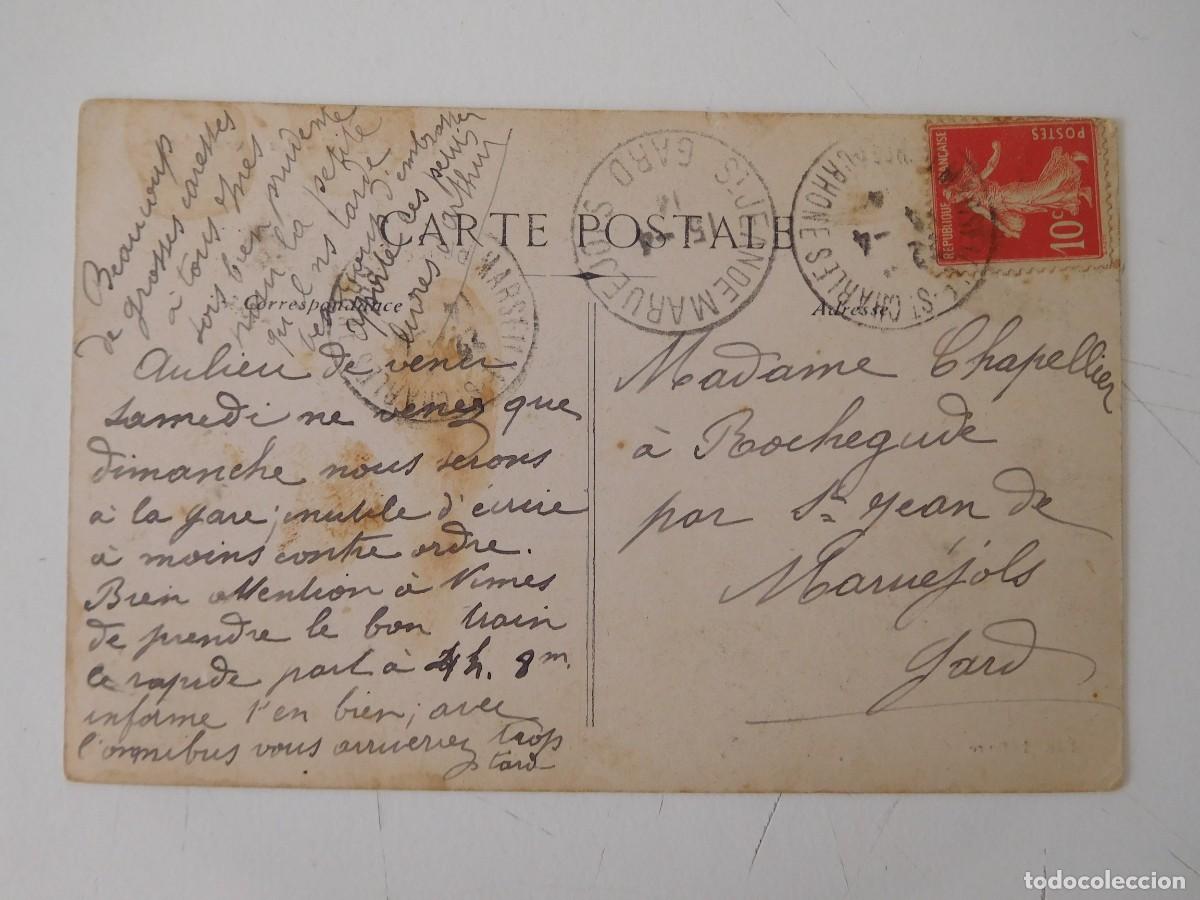 Beaucoup
de grosses caresses
à tous tres
sois bien prudente
pour la petite
qu'il ns tarde
beaucoup d'embrasser
des petits
livres
Arthur
CARTE POSTALE
Correspondance
Adresse
Au lieu de venir
samedi ne venez que
dimanche nous serons
à la gare; inutile d'écrire
à moins contre ordre.
Bien attention à Nimes
de prendre le bon train
le rapide part à 4h. 8m.
informe t'en bien; avec
l'omnibus vous arriveriez trop
tard
Madame Chapellier
à Rochegude
par St Jean de
Maruéjols
Gard
ST JEAN DE MARUEJOLS
GARD
15
MARSEILLE
ST CHARLES
BCHES DU RHONE
REPUBLIQUE FRANÇAISE
POSTES
10c
todocoleccion